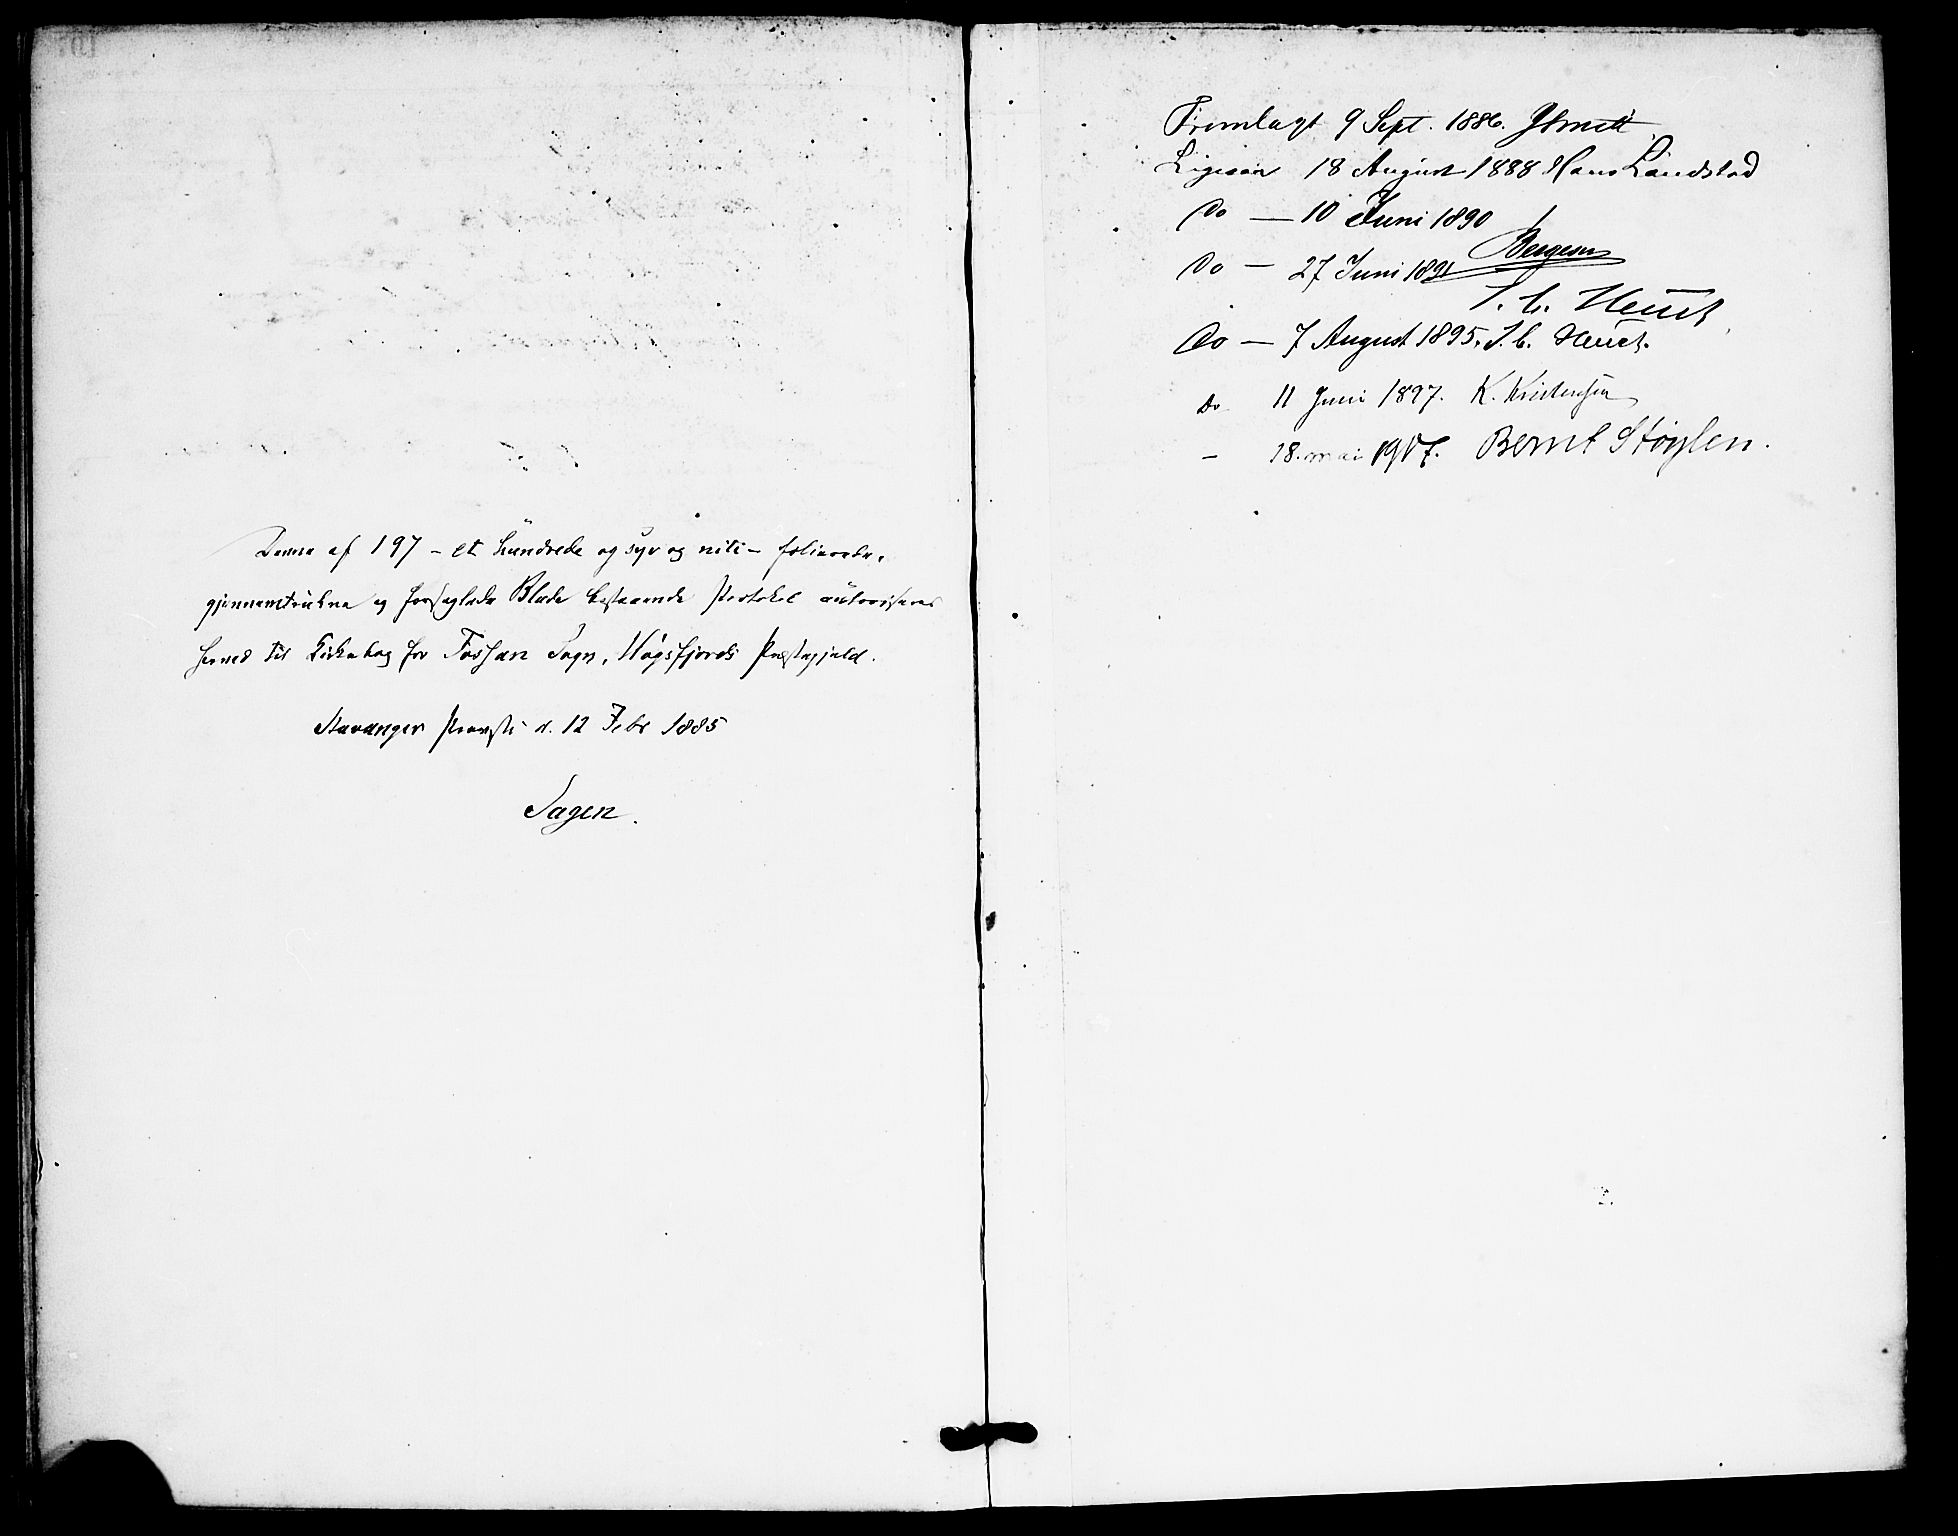 Denne af 197 – et hundrede og syv og niti – folierede,
gjennemtrukne og forseglede Blade bestaaende Protokol autoriseres
herved til Kirkebog for Fossan Sogn, Høgsfjords Præstegjeld.
Stavanger Provsti d. 12 Febr 1885
Sagen.
Fremlagt 9 Sept. 1886.
Ligesaa 18 August 1888 Hans Landstad
Do — 10 Juni 1890
Bergesen
Do — 27 Juni 1891
J. C. Heuch
Do — 7 August 1895. J. C. Heuch.
Do 11 Juni 1897. K. Kristensen
– 18. mai 1917. Bernt Støylen.